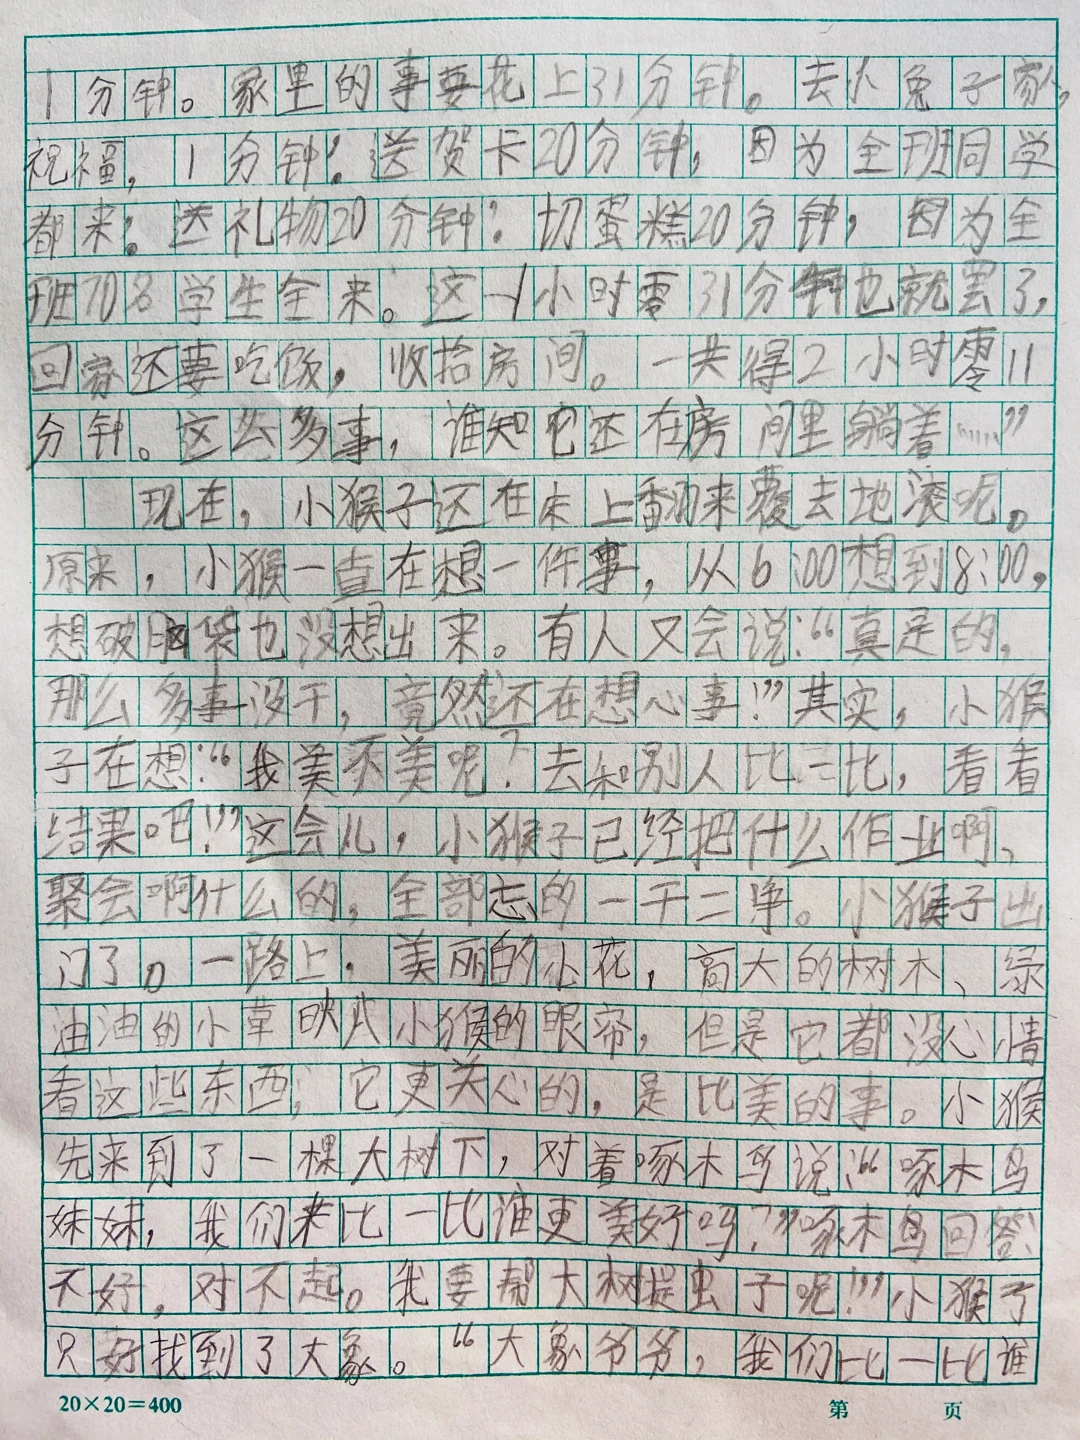 1分钟。家里的事要花上31分钟。去小兔子家,
祝福,1分钟;送贺卡20分钟,因为全班同学
都来;送礼物20分钟;切蛋糕20分钟,因为全
班70名学生全来。这一小时零31分钟也就罢了,
回家还要吃饭,收拾房间。一共得2小时零11
分钟。这么多事,谁知它还在房间里躺着……”
现在,小猴子还在床上翻来覆去地滚呢。
原来,小猴一直在想一件事,从6:00想到8:00,
想破脑袋也没想出来。有人又会说:“真是的,
那么多事没干,竟然还在想心事!”其实,小猴
子在想:“我美不美呢?去和别人比一比,看看
结果吧!”这会儿,小猴子已经把什么作业啊、
聚会啊什么的,全部忘的一干二净。小猴子出
门了。一路上,美丽的小花,高大的树木、绿
油油的小草映入小猴的眼帘,但是它都没心情
看这些东西,它更关心的,是比美的事。小猴
先来到了一棵大树下,对着啄木鸟说:“啄木鸟
妹妹,我们来比一比谁更美好吗?”啄木鸟回答:
不好,对不起。我要帮大树捉虫子呢!”小猴子
只好找到了大象。“大象爷爷,我们比一比谁
20×20=400
第 页